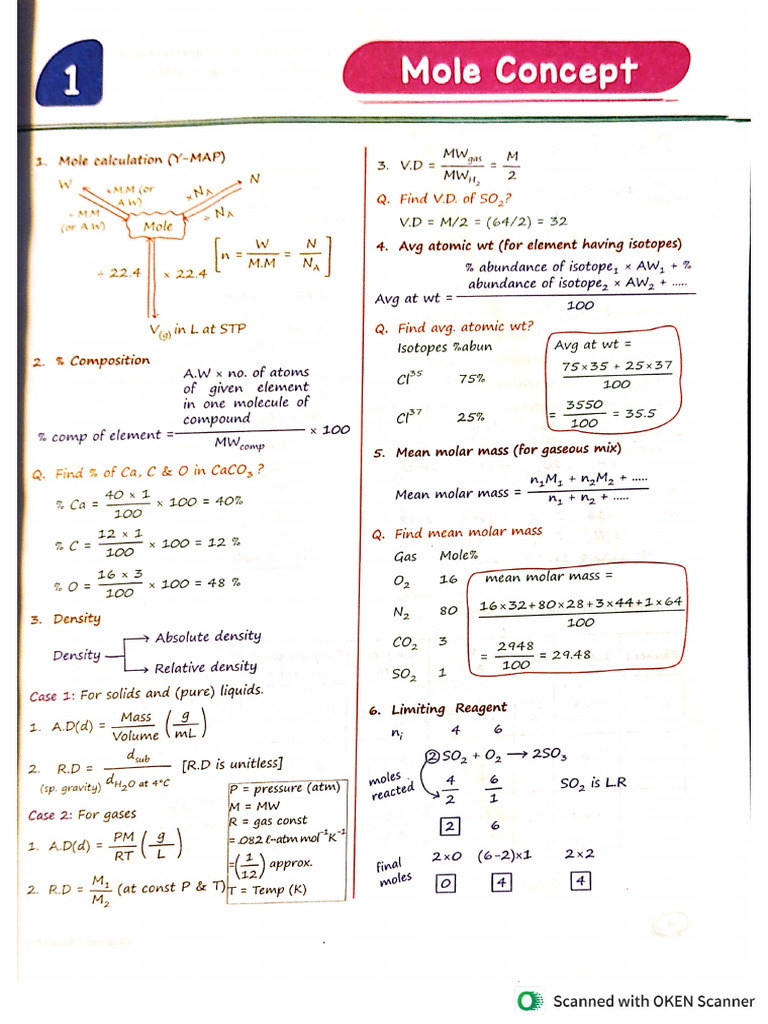 1
Mole Concept
1. Mole calculation (Y-MAP)
W
×M.M (or A.W)
÷ M.M (or A.W)
× N_A
÷ N_A
N
Mole
[n = W/M.M = N/N_A]
÷ 22.4
× 22.4
V(g) in L at STP
2. % Composition
% comp of element = (A.W × no. of atoms of given element in one molecule of compound / MW_comp) × 100
Q. Find % of Ca, C & O in CaCO₃ ?
% Ca = (40 × 1)/100 × 100 = 40%
% C = (12 × 1)/100 × 100 = 12 %
% O = (16 × 3)/100 × 100 = 48 %
3. Density
Density
Absolute density
Relative density
Case 1: For solids and (pure) liquids.
1. A.D(d) = Mass/Volume (g/mL)
2. R.D = d_sub / d_H₂O at 4°C [R.D is unitless]
(sp. gravity)
Case 2: For gases
1. A.D(d) = PM/RT (g/L)
2. R.D = M₁/M₂ (at const P & T)
P = pressure (atm)
M = MW
R = gas const
= .082 ℓ-atm mol⁻¹K⁻¹
= (1/12) approx.
T = Temp (K)
3. V.D = MW_gas/MW_H₂ = M/2
Q. Find V.D. of SO₂?
V.D = M/2 = (64/2) = 32
4. Avg atomic wt (for element having isotopes)
Avg at wt = (% abundance of isotope₁ × AW₁ + % abundance of isotope₂ × AW₂ + .....)/100
Q. Find avg. atomic wt?
Isotopes %abun
Cl³⁵ 75%
Cl³⁷ 25%
Avg at wt =
(75×35 + 25×37)/100
= 3550/100 = 35.5
5. Mean molar mass (for gaseous mix)
Mean molar mass = (n₁M₁ + n₂M₂ + .....)/(n₁ + n₂ + .....)
Q. Find mean molar mass
Gas Mole%
O₂ 16
N₂ 80
CO₂ 3
SO₂ 1
mean molar mass =
(16×32+80×28+3×44+1×64)/100
= 2948/100 = 29.48
6. Limiting Reagent
nᵢ 4 6
2SO₂ + O₂ → 2SO₃
moles reacted 4/2 6/1 SO₂ is L.R
2 6
final moles 2×0 (6-2)×1 2×2
0 4 4
Scanned with OKEN Scanner